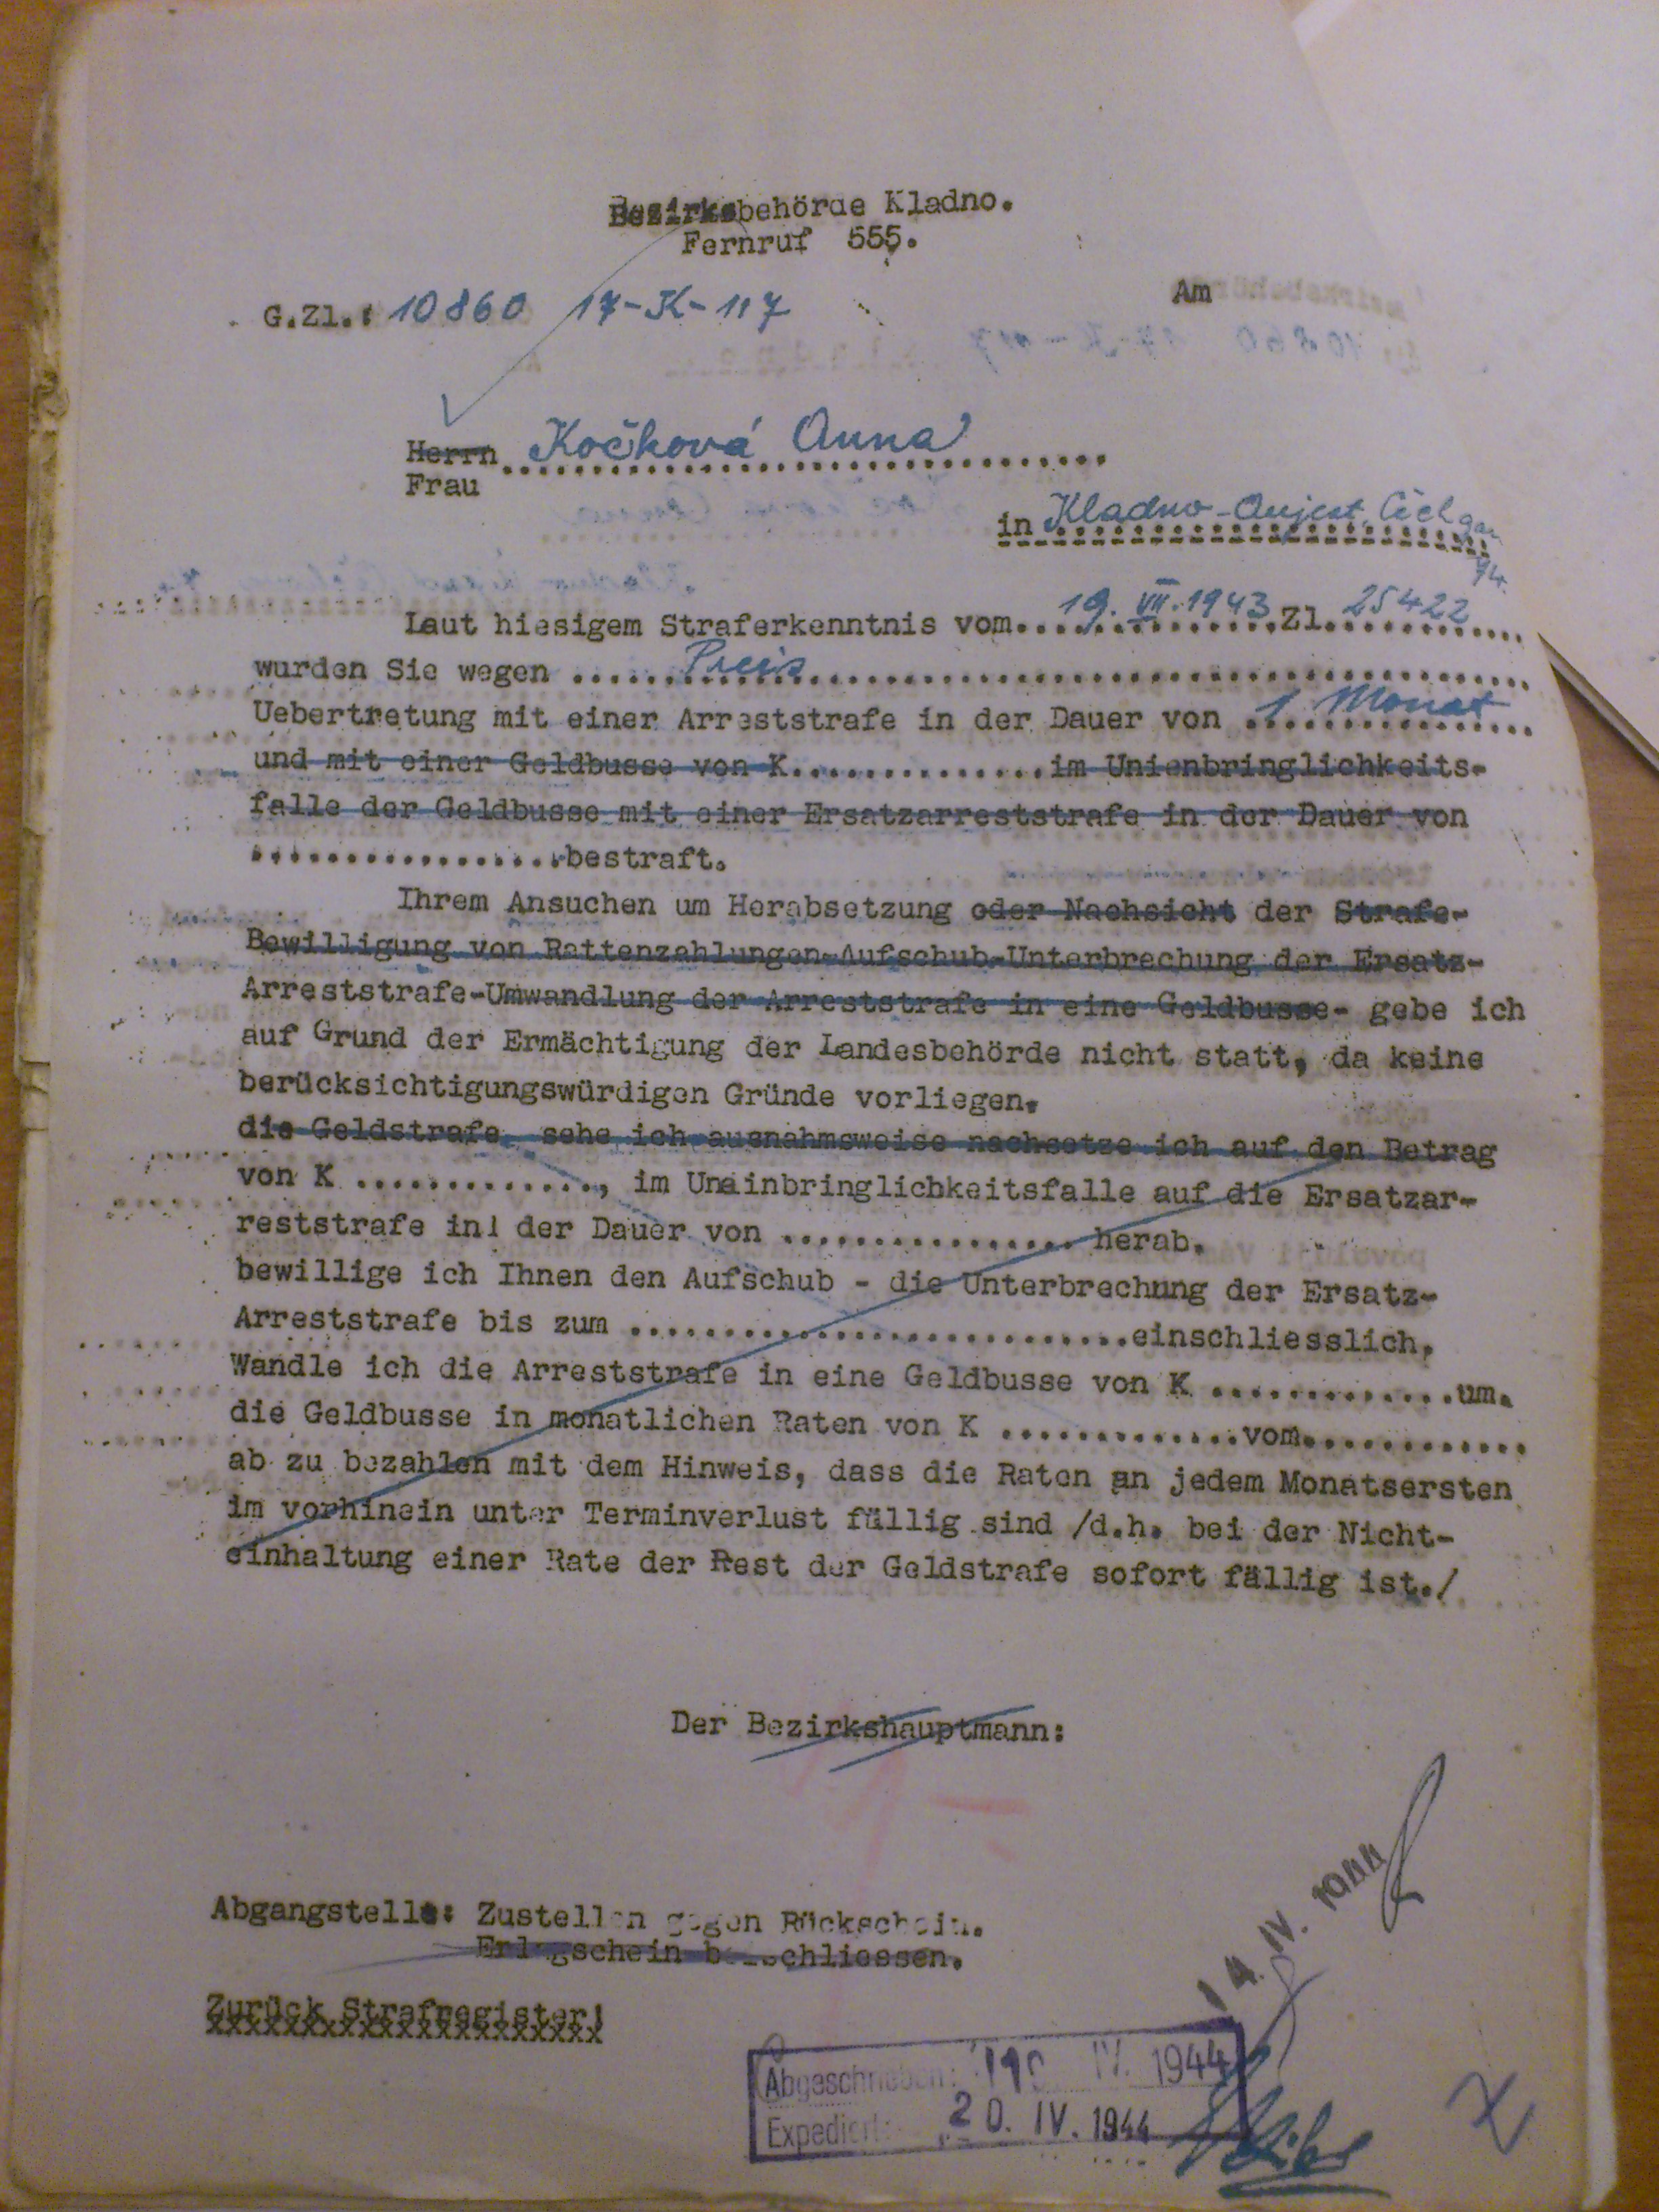 Bezirksbehörde Kladno.
Fernruf 555.
G.Zl.: 10860 17-K-117
Am
Herrn Kočková Anna
Frau
in Kladno-
74.
Laut hiesigem Straferkenntnis vom 19. VII. 1943 Zl. 25422
wurden Sie wegen ..... Preis ..........
Uebertretung mit einer Arreststrafe in der Dauer von 1 Monat
und mit einer Geldbusse von K..............im Unienbringlichkeits-
falle der Geldbusse mit einer Ersatzarreststrafe in der Dauer von
.................bestraft.
Ihrem Ansuchen um Herabsetzung oder Nachsicht der Strafe-
Bewilligung von Rattenzahlungen-Aufschub-Unterbrechung der Ersatz-
Arreststrafe-Umwandlung der Arreststrafe in eine Geldbusse- gebe ich
auf Grund der Ermächtigung der Landesbehörde nicht statt, da keine
berücksichtigungswürdigen Gründe vorliegen.
die Geldstrafe sehe ich ausnahmsweise nachsetze ich auf den Betrag
von K ............., im Uneinbringlichkeitsfalle auf die Ersatzar-
reststrafe in der Dauer von ................ herab.
bewillige ich Ihnen den Aufschub - die Unterbrechung der Ersatz-
Arreststrafe bis zum ...........................einschliesslich,
Wandle ich die Arreststrafe in eine Geldbusse von K .............um.
die Geldbusse in monatlichen Raten von K .............vom............
ab zu bezahlen mit dem Hinweis, dass die Raten an jedem Monatsersten
im vorhinein unter Terminverlust fällig sind /d.h. bei der Nicht-
einhaltung einer Rate der Rest der Geldstrafe sofort fällig ist./
Der Bezirkshauptmann:
Abgangstelle: Zustellen gegen Rückschein.
Erlagschein beischliessen.
14. IV. 1944
Zurück Strafregister!
xxxxxxxxxxxxxxxxxxxxx
Abgeschrieben: IV. 1944
Expediert: 20. IV. 1944